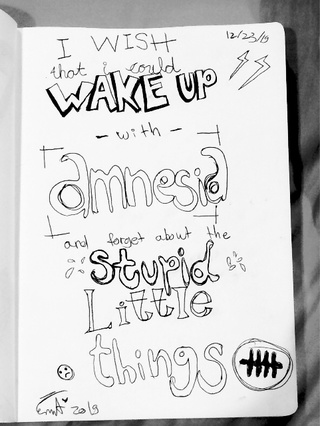 I WISH
12/23/19
that i could
WAKE UP
- with -
amnesia
and forget about the
stupid
Little
things
2019